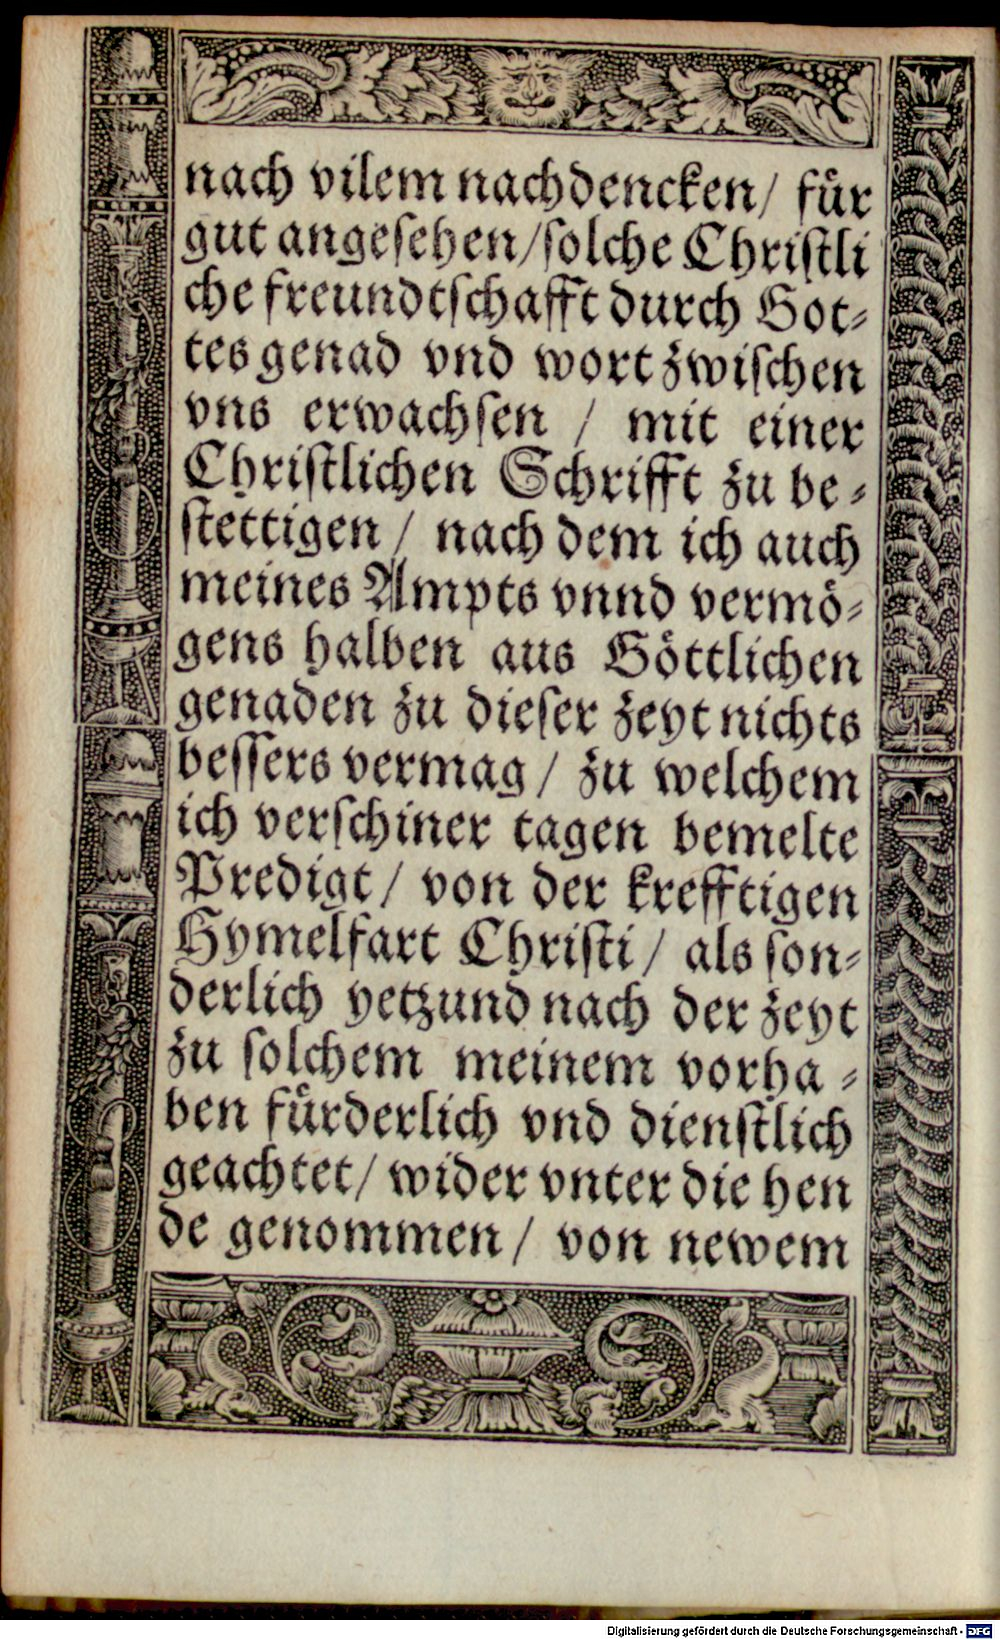 nach vilem nachdencken/ fuͤr
gut angesehen/solche Christli
che freundtschafft durch Got⸗
tes genad vnd wort zwischen
vns erwachsen / mit einer
Christlichen Schrifft zu be⸗
stettigen / nach dem ich auch
meines Ampts vnnd vermoͤ⸗
gens halben aus Goͤttlichen
genaden zu dieser zeyt nichts
bessers vermag / zu welchem
ich verschiner tagen bemelte
Predigt / von der krefftigen
Hymelfart Christi / als son⸗
derlich yetzund nach der zeyt
zu solchem meinem vorha⸗
ben fuͤrderlich vnd dienstlich
geachtet/ wider vnter die hen
de genommen / von newem
Digitalisierung gefördert durch die Deutsche Forschungsgemeinschaft - DFG